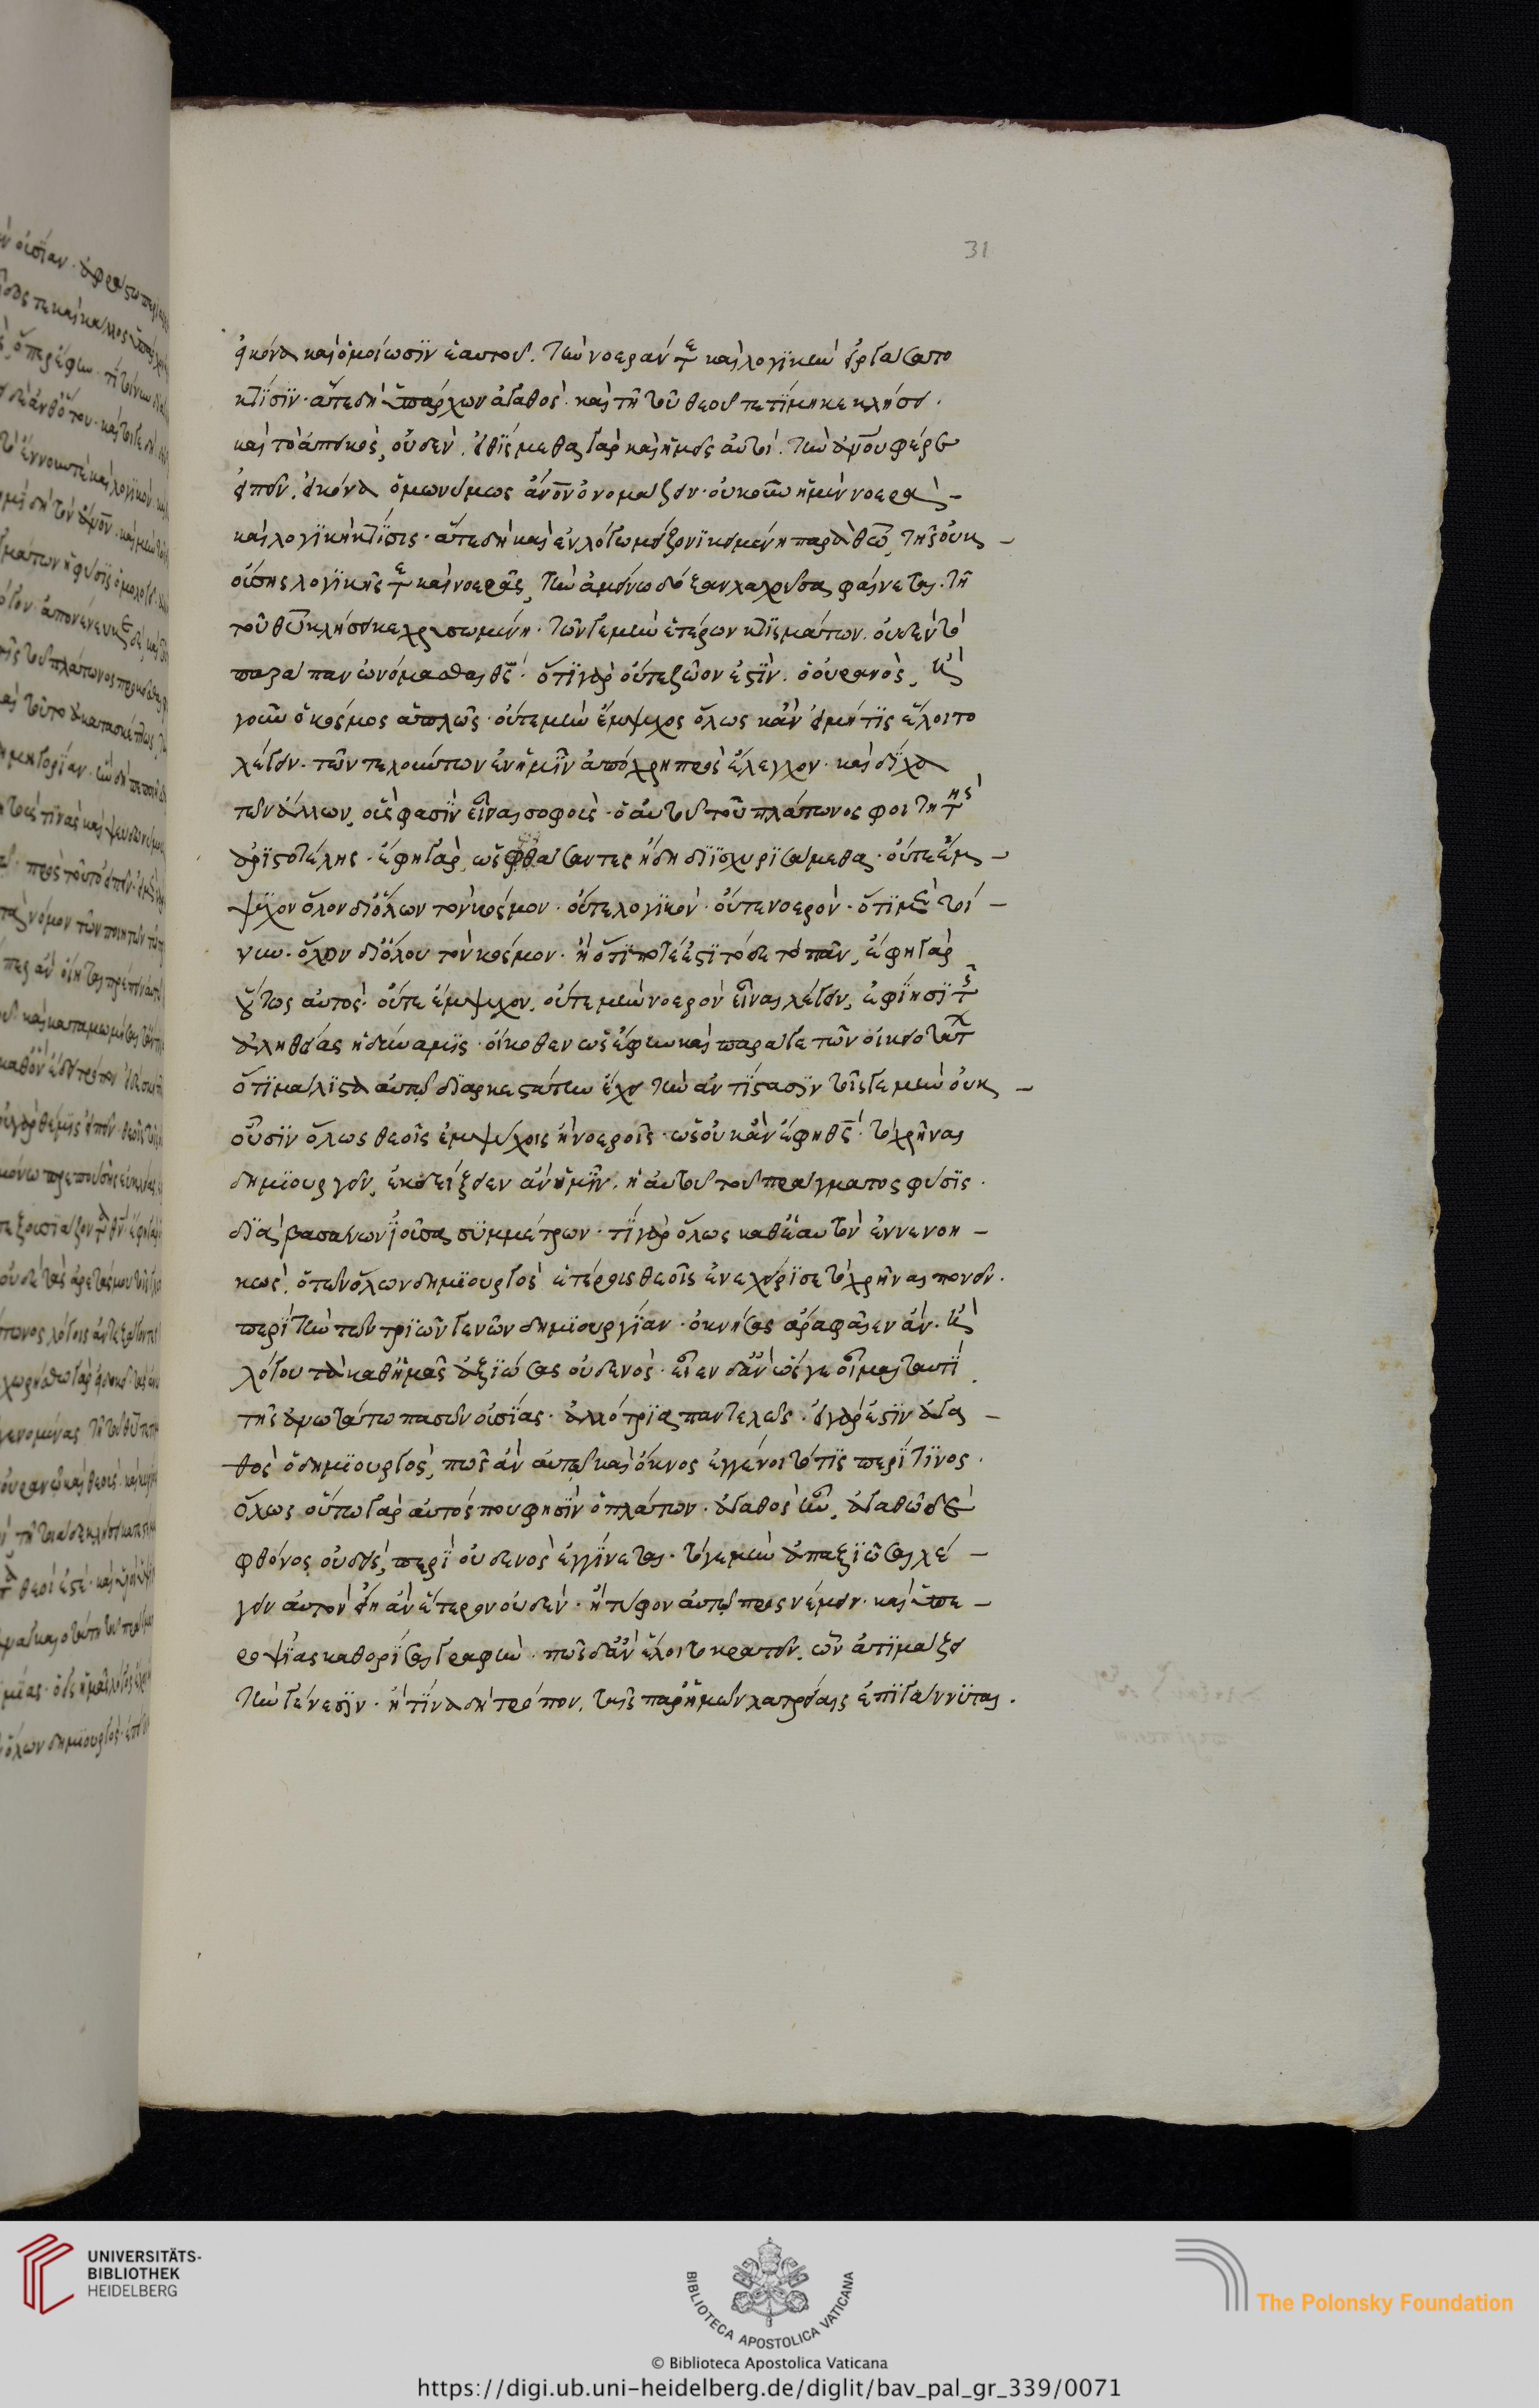 31
εἰκόνα καὶ ὁμοίωσιν ἑαυτοῦ. τὴν νοεράν τε καὶ λογικὴν εἰργάσατο
κτίσιν· ἅτε δὴ ὑπάρχων ἀγαθὸς. καὶ τῇ τοῦ θεοῦ τετίμηκε κλήσει.
καὶ τὸ ἀπεικὸς, οὐδέν. εἰθίσμεθα γὰρ καὶ ἡμεῖς αὐτοὶ. τὴν ἀνου φέρε
εἰπεῖν, εἰκόνα ὁμωνύμως ἀνον ὀνομάζειν· οὐκοῦν ἡ μὲν νοερὰ –
καὶ λογικὴ κτίσις· ἅτε δὴ καὶ ἐν λόγω μείζονι κειμένη παρὰ θεῶ, τῆς οὐκ –
οὔσης λογικῆς τε καὶ νοερᾶς, τὴν ἀμείνω δόξαν λαχοῦσα φαίνεται. τῆ
τοῦ θεοῦ κλήσει κεχρισωμένη. τῶν γε μὴν ἑτέρων κτισμάτων. οὐδὲν τὸ
παράπαν ὠνόμασται θς· ὅτι γὰρ οὔτε ζῶον ἐστὶν. ὁ οὐρανὸς, καὶ
γοῦν ὁ κόσμος ἁπλῶς· οὔτε μὴν ἔμψυχος ὅλως κἂν εἰ μή τις ἕλοιτο
λέγειν. τῶν τελούντων ἐν ἡμῖν ἀπόχρη πρὸς ἔλεγχον. καὶ δίχα
τῶν ἄλλων, οἵς φασὶν εἶναι σοφοὶς· ὁ αὐτοῦ τοῦ πλάτωνος φοιτητὴς
ἀριστοτέλης. ἔφη γὰρ, ὡς φθάσαντες ἤδη διϊσχυρισάμεθα. οὔτε ἔμ –
ψυχον ὅλον δι' ὅλων τὸν κόσμον. οὔτε λογικὸν. οὔτε νοερὸν. ὅτι μὲν τοί –
νυν. ὅλον δι' ὅλου τὸν κόσμον. ἢ ὅτι ποτέ ἐστι τόδε τὸ πᾶν, ἔφη γὰρ
οὕτως αὐτὸς. οὔτε ἔμψυχον. οὔτε μὴν νοερὸν εἶναι λέγειν, ἐφίησι τῆς
ἀληθείας ἡ δύναμις· οἴκοθεν ὡς ἔφην καὶ παρά γε τῶν οἰκειοτάτων
ὅτι μάλιστα αὐτῶ διαρκεστάτην ἔχει τὴν ἀντίστασιν τοῖς γε μὴν οὐκ –
οὖσιν ὅλως θεοῖς ἐμψύχοις ἢ νοεροῖς· ὡς οὐκ ἂν ἔφη θς. τὸ χρῆναι
δημιουργεῖν, ἐκδείξειεν ἂν ἡμῖν. ἡ αὐτοῦ τοῦ πράγματος φύσις.
διὰ βασάνων ἰοῦσα συμμέτρων. τί γὰρ ὅλως καθ' ἑαυτὸν ἐννενοη –
κὼς. ὁ τῶν ὅλων δημιουργὸς ἑτέροις θεοῖς ἐνεχείρισε τὸ χρῆναι πονεῖν.
περὶ τὴν τῶν τριῶν γενῶν δημιουργίαν. ὀκνήσας ἆρα φαῖεν ἂν. καὶ
λόγου τὰ καθ' ἡμᾶς ἀξιώσας οὐδενὸς. εἶεν δ' ἂν ὥς γε οἶμαι ταυτὶ
τῆς ἀνωτάτω πασῶν οὐσίας. ἀλλότρια παντελῶς. εἰ γὰρ ἐστὶν ἀγα –
θὸς ὁ δημιουργὸς, πῶς ἂν αὐτῶ καὶ ὄκνος ἐγγένοιτό τις περὶ τινος.
ὅλως οὕτω γὰρ αὐτός που φησὶν ὁ πλάτων. ἀγαθὸς ἦν, ἀγαθῶ δὲ
φθόνος οὐδεὶς, περὶ οὐδενὸς ἐγγίνεται. τό γε μὴν ἀπαξιῶσαι λέ –
γειν αὐτὸν εἴη ἂν ἕτερον οὐδὲν. ἢ τύφον αὐτῶ προσνέμειν. καὶ ὑπε –
ροψίας καθορίσαι γραφὴν. πῶς δ' ἂν ἕλοιτο κρατεῖν. ὧν ἀτιμάζει
τὴν γένεσιν. ἢ τίνα δὴ τρόπον. ταῖς παρ' ἡμῶν λατρείαις ἐπιγάννυται.
UNIVERSITÄTS-
BIBLIOTHEK
HEIDELBERG
BIBLIOTECA APOSTOLICA VATICANA
The Polonsky Foundation
© Biblioteca Apostolica Vaticana
https://digi.ub.uni-heidelberg.de/diglit/bav_pal_gr_339/0071